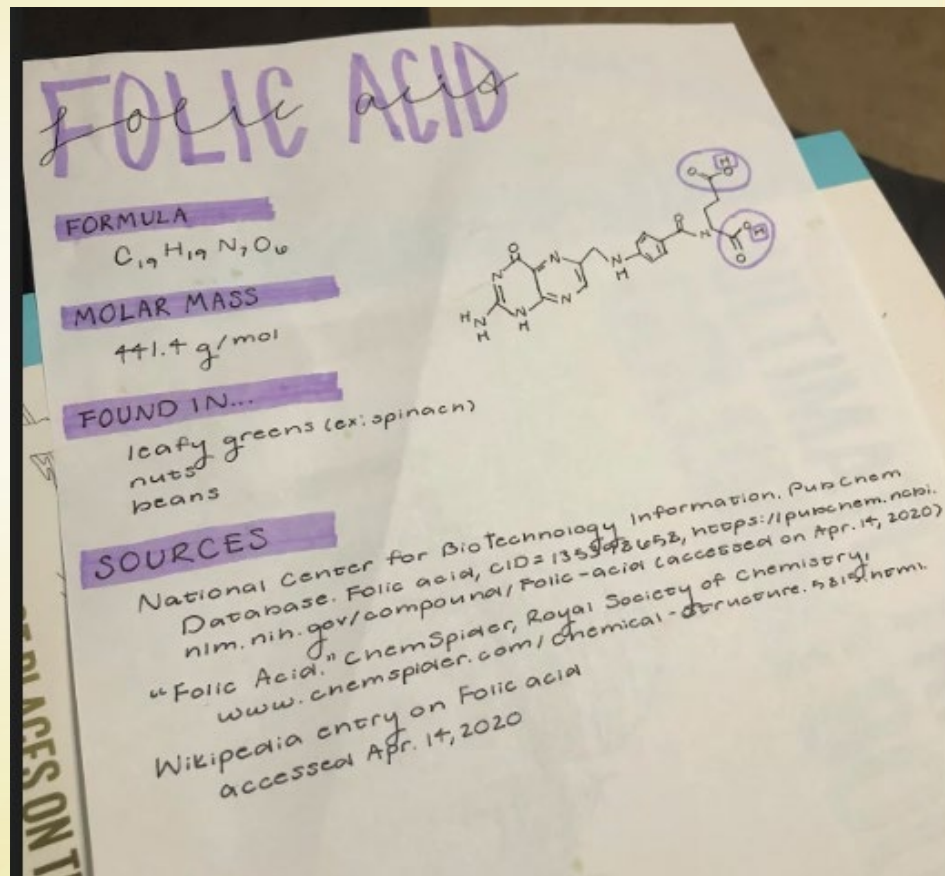 FOLIC ACID
folic acid
FORMULA
C₁₉H₁₉N₇O₆
MOLAR MASS
441.4 g/mol
FOUND IN...
leafy greens (ex: spinach)
nuts
beans
SOURCES
National Center for Biotechnology Information. PubChem
Database. Folic acid, CID=135398658, https://pubchem.ncbi.
nlm.nih.gov/compound/Folic-acid (accessed on Apr. 14, 2020)
"Folic Acid." ChemSpider, Royal Society of Chemistry,
www.chemspider.com/Chemical-Structure.5815.html.
Wikipedia entry on Folic acid
accessed Apr. 14, 2020
O
N
N
H
N
H
N
H
N
N
H
O
N
O
O
H
O
H
O